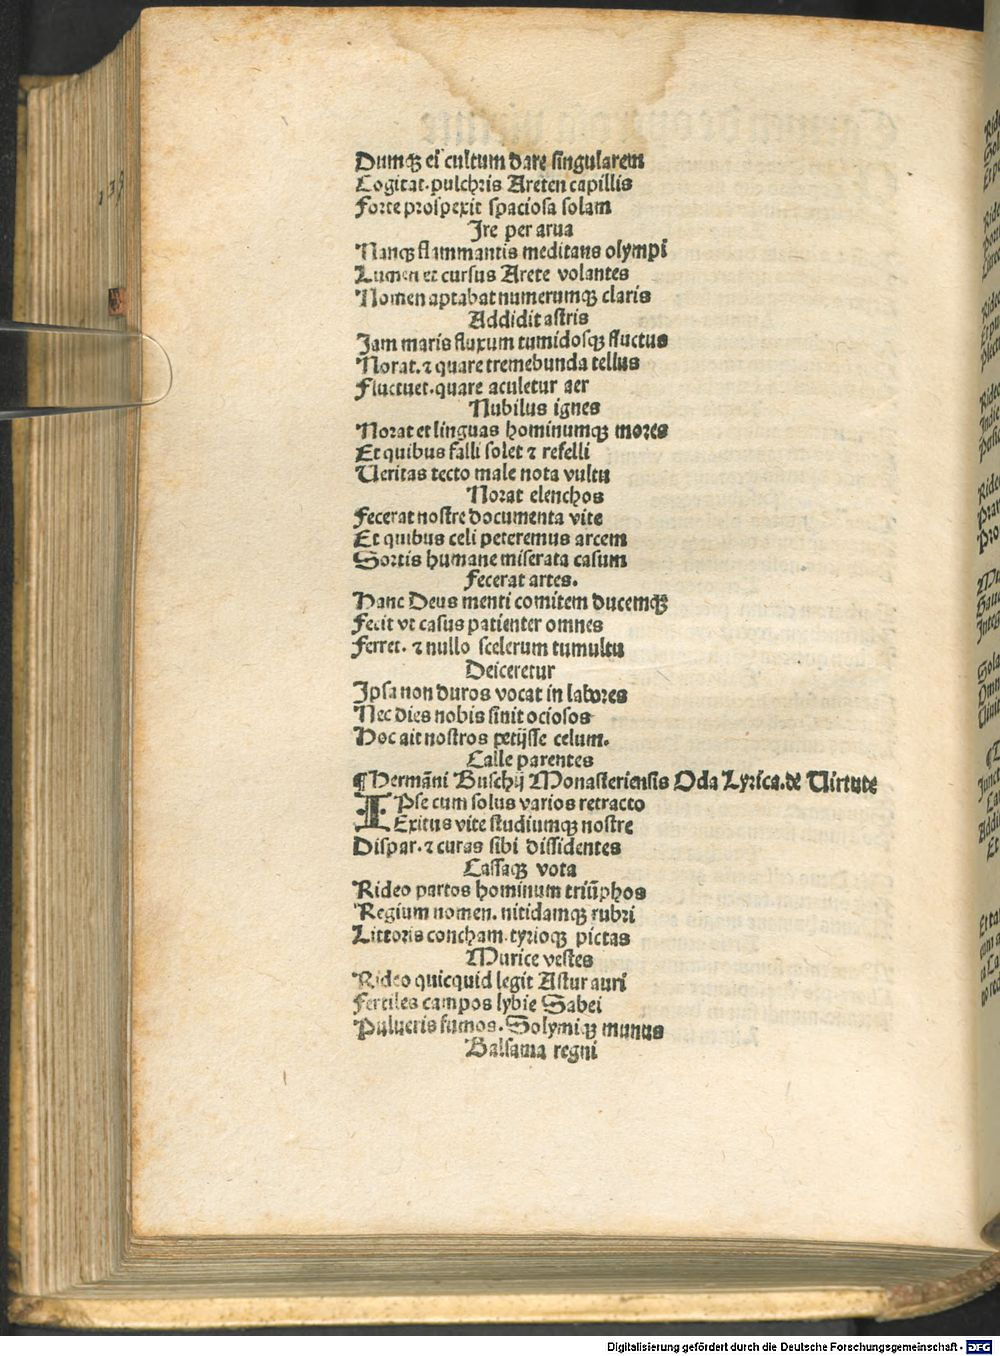 Dumqꝫ ei cultum dare singularem
Cogitat. pulchris Areten capillis
Forte prospexit spaciosa solam
Ire per arua
Nanqꝫ flammantis meditans olympi
Lumen et cursus Arete volantes
Nomen aptabat numerumqꝫ claris
Addidit astris
Jam maris fluxum tumidosqꝫ fluctus
Norat. ⁊ quare tremebunda tellus
Fluctuet. quare aculetur aer
Nubilus ignes
Norat et linguas hominumqꝫ mores
Et quibus falli solet ⁊ refelli
Ueritas tecto male nota vultu
Norat elenchos
Fecerat nostre documenta vite
Et quibus celi peteremus arcem
Sortis humane miserata casum
Fecerat artes.
Hanc Deus menti comitem ducemqꝫ
Fecit vt casus patienter omnes
Ferret. ⁊ nullo scelerum tumultu
Deiceretur
Ipsa non duros vocat in labores
Nec dies nobis sinit ociosos
Hoc ait nostros petijsse celum.
Calle parentes
¶Hermāni Buschij Monasteriensis Oda Lyrica. de Uirtute
IPse cum solus varios retracto
Exitus vite studiumqꝫ nostre
Dispar. ⁊ curas sibi dissidentes
Cassaqꝫ vota
Rideo partos hominum triūphos
Regium nomen. nitidamqꝫ rubri
Littoris concham. tyrioqꝫ pictas
Murice vestes
Rideo quicquid legit Astur auri
Fertiles campos lybie Sabei
Pulueris fumos. Solymiqꝫ munus
Balsama regni
Digitalisierung gefördert durch die Deutsche Forschungsgemeinschaft - DFG